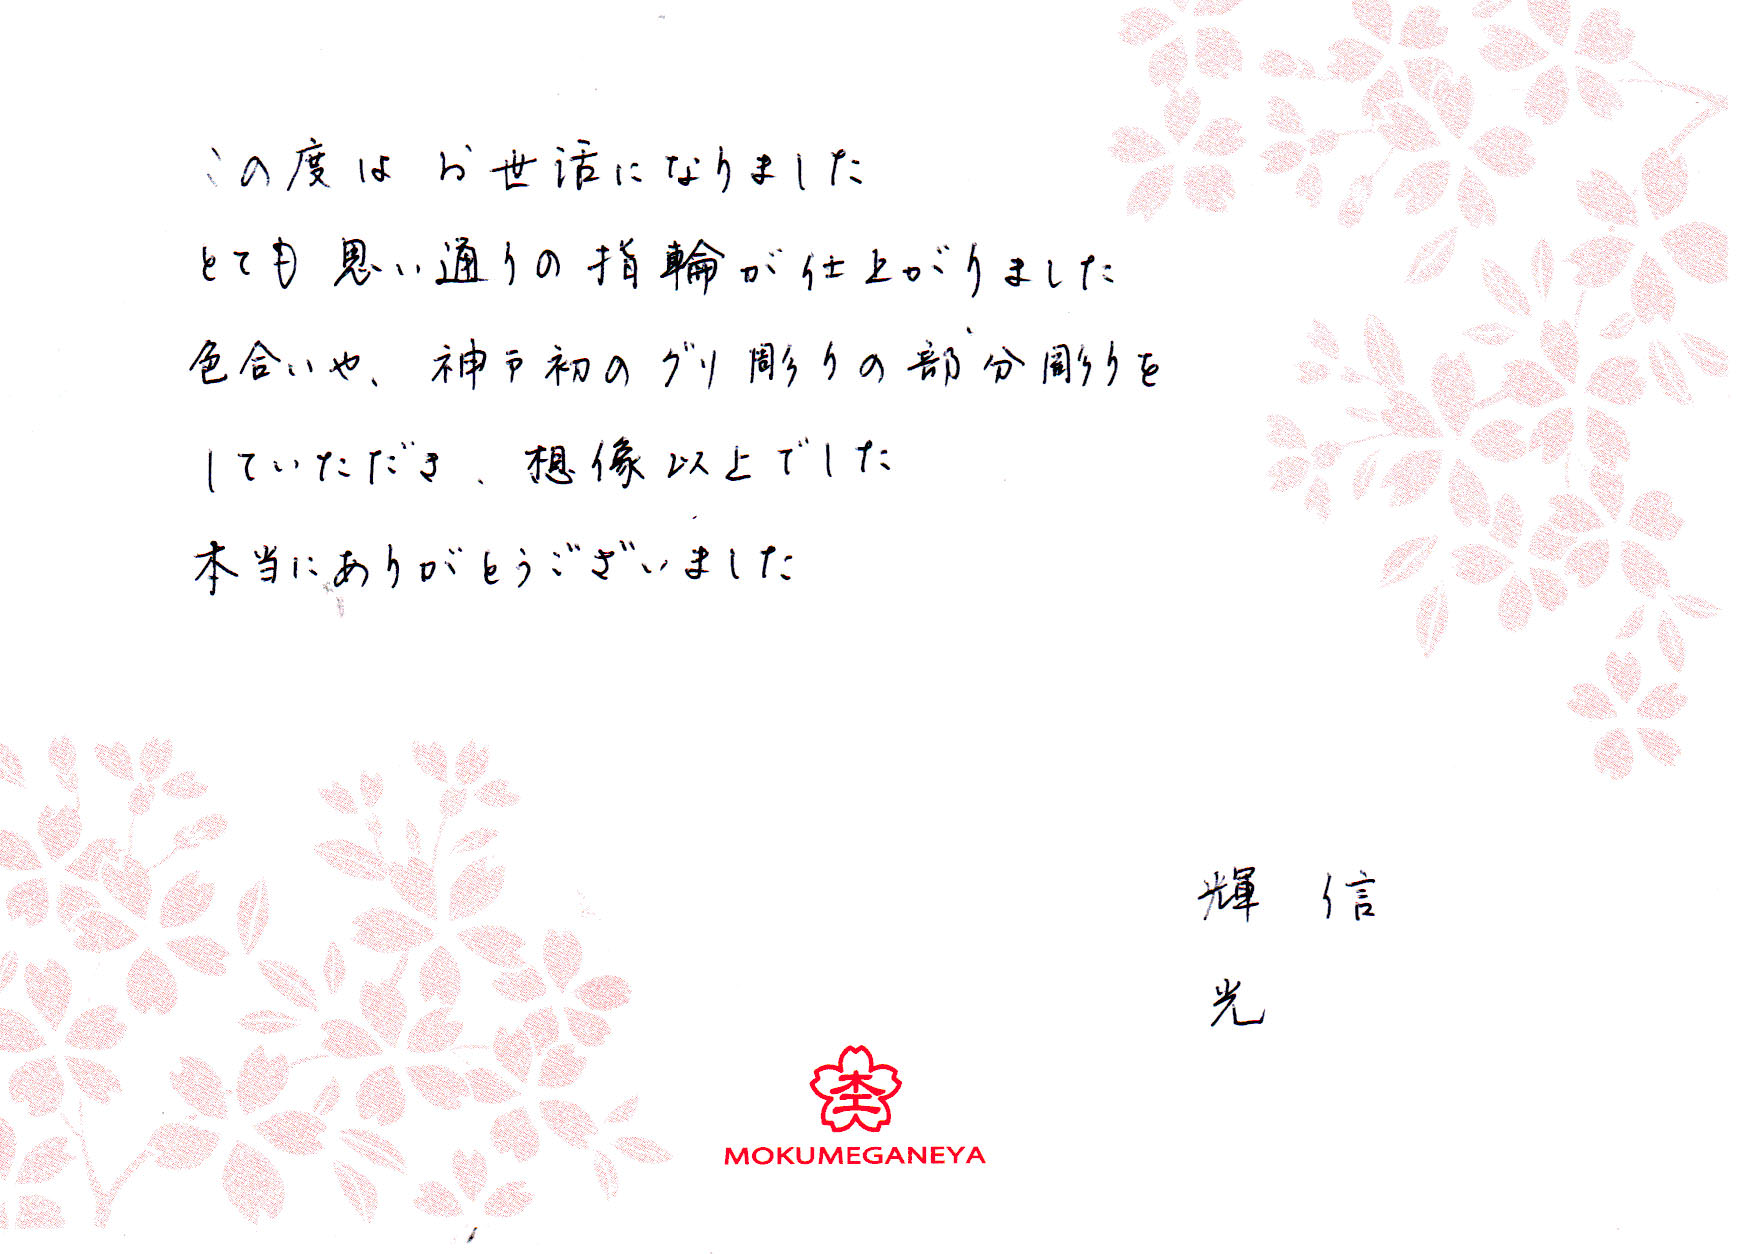 この度は お世話になりました
とても思い通りの指輪が仕上がりました
色合いや、神戸初のグリ彫りの部分彫りを
していただき、想像以上でした
本当にありがとうございました
輝 信
光
MOKUMEGANEYA